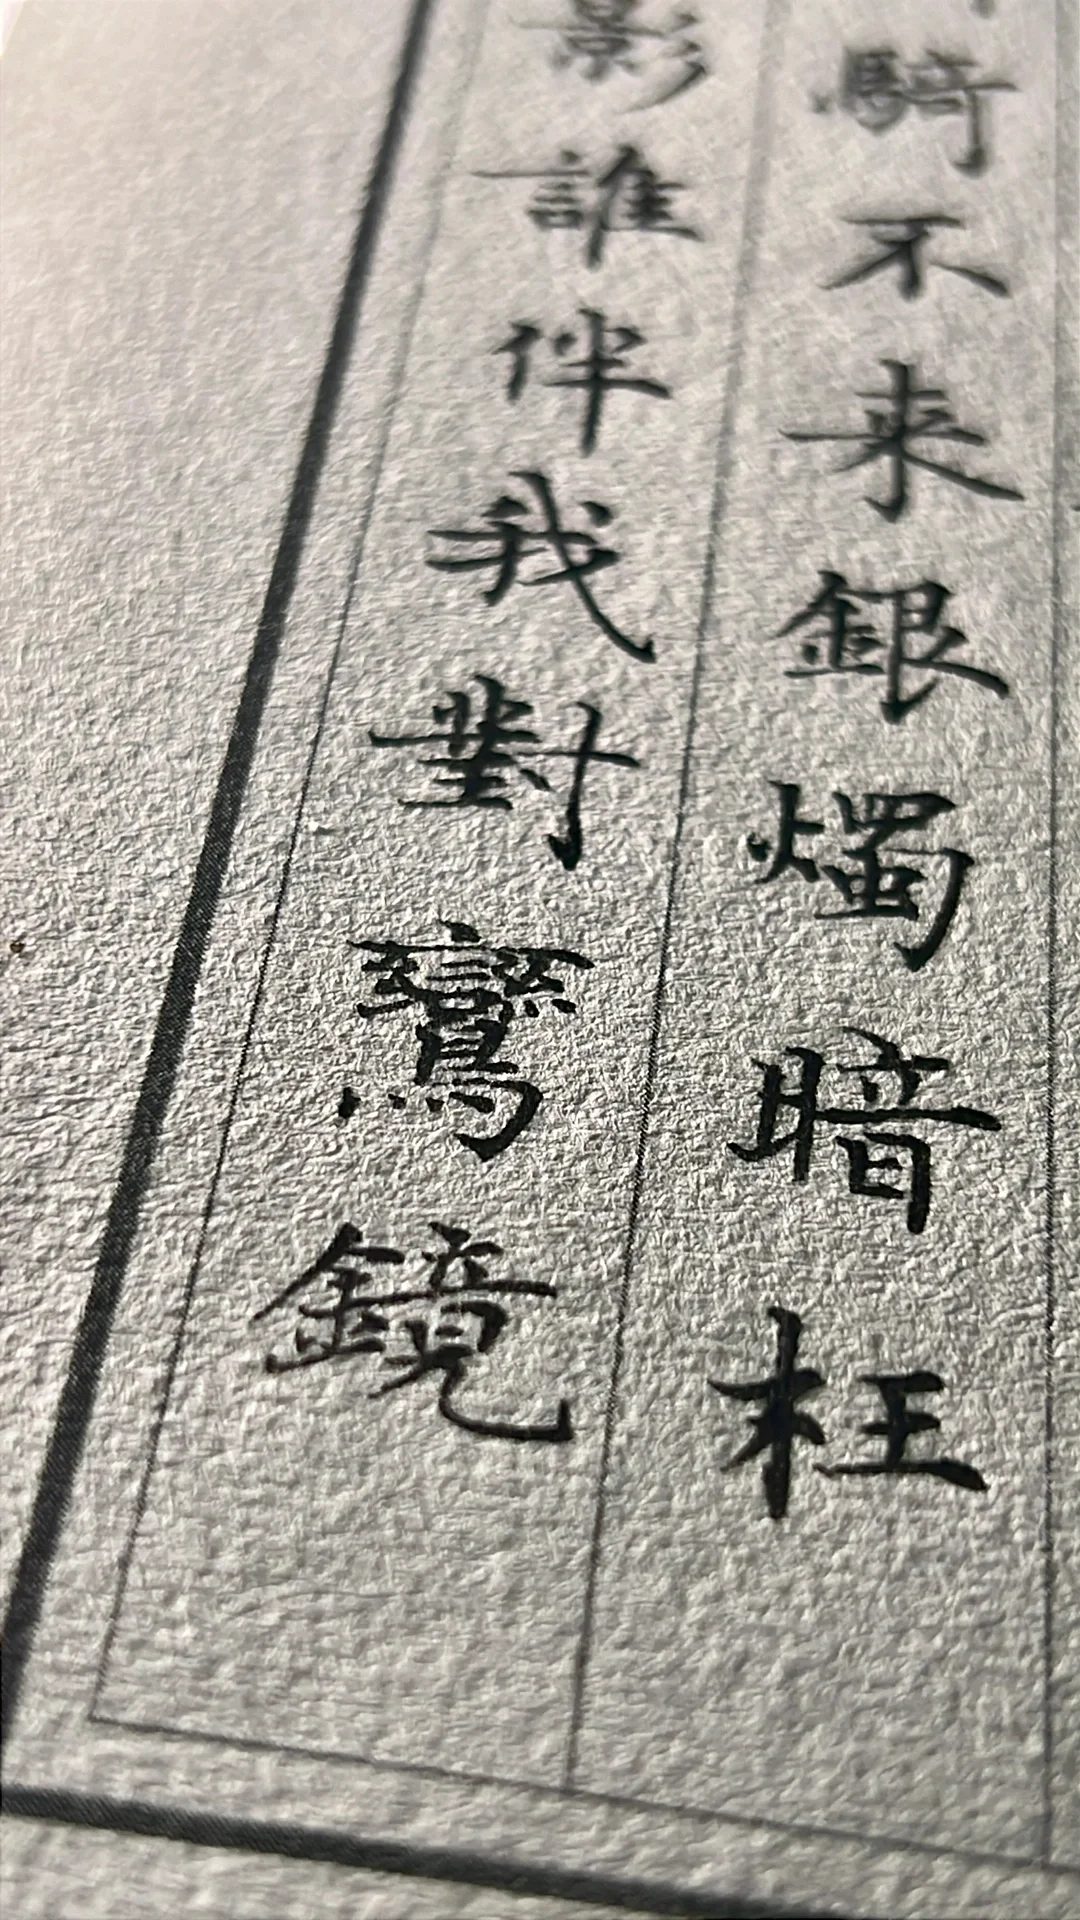 騎不来銀燭暗枉
影誰伴我對鸞鏡